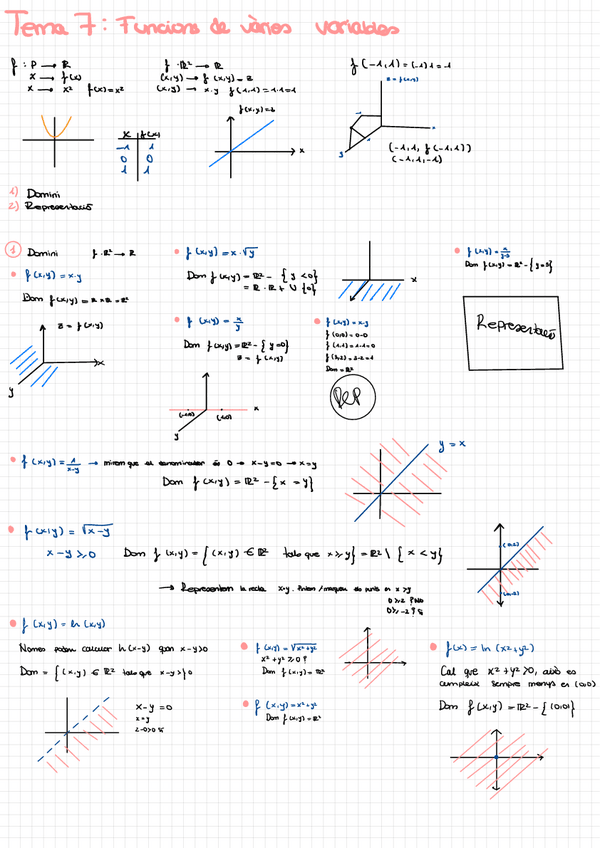 Tema 7: Funcions de vàries variables
f : P → R
x → f(x)
x → x² f(x)=x²
f : R² → R
(x,y) → f(x,y)=z
(x,y) → x·y f(1,1)=1·1=1
f(-1,1)=(-1)1=-1
z = f(x,y)
x f(x)
-1 1
0 0
1 1
f(x,y)=z
x
x
y
(-1,1, f(-1,1))
(-1,1,-1)
1) Domini
2) Representació
1 Domini f: R² → R
• f(x,y) = x·y
Dom f(x,y) = R×R = R²
z = f(x,y)
x
y
• f(x,y) = x·√y
Dom f(x,y) = R² - {y <0}
= R·R+ ∪ {0}
x
• f(x,y) = x/y
Dom f(x,y) = R² - {y=0}
z = f(x,y)
(-1,0) (1,0)
x
y
• f(x,y) = x-y
f(0,0) = 0-0
f(1,1) = 1-1=0
f(3,2) = 3-2=1
Dom = R²
DEP
Dom f(x,y) = R² - {y=3}
Representació
• f(x,y) = 1/x-y → mirem que el denominador és 0 → x-y=0 → x=y
Dom f(x,y) = R² - {x = y}
y = x
• f(x,y) = √x-y
x-y ≥ 0
Dom f(x,y) = {(x,y) ∈ R² tals que x ≥ y} = R² \ { x < y}
→ Representem la recta x=y.
0 ≥ 2 ? NO
0 ≥ -2 ? Sí
(0,2)
(0,-2)
• f(x,y) = ln (x,y)
Nomes podem calcular ln(x-y) quan x-y>0
Dom = {(x,y) ∈ R² tals que x-y > 0
x-y = 0
x=y
2-0>0 Sí
• f(x,y) = √x²+y²
x² + y² ≥ 0 ?
Dom f(x,y) = R²
• f(x,y) = x²+y²
Dom f(x,y) = R²
• f(x) = ln (x²+y²)
Cal que x²+y²>0, això es
compleix sempre menys en (0,0)
Dom f(x,y) = R² - {(0,0)}